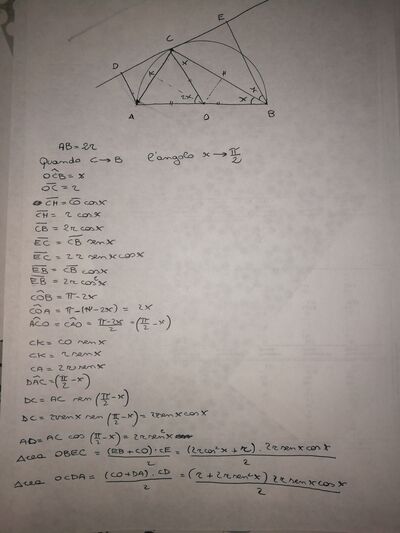 E
C
D
K
x
H
x
2x
x
A
O
B
AB = 2r
Quando C → B l'angolo x → π/2
OĈB = x
OC = r
CH = CO cosx
CH = r cosx
CB = 2r cosx
EC = CB senx
EC = 2r senx cosx
EB = CB cosx
EB = 2r cos²x
CÔB = π-2x
CÔA = π-(π-2x) = 2x
AĈO = CÂO = (π-2x)/2 = (π/2 - x)
CK = CO senx
CK = r senx
CA = 2r senx
DÂC = (π/2 - x)
DC = AC sen(π/2 - x)
DC = 2r senx sen(π/2 - x) = 2r senx cosx
AD = AC cos(π/2 - x) = 2r sen²x
Area OBEC = (EB + CO)·CE / 2 = (2r cos²x + r)·2r senx cosx / 2
Area OCDA = (CO + DA)·CD / 2 = (r + 2r sen²x) 2r senx cosx / 2